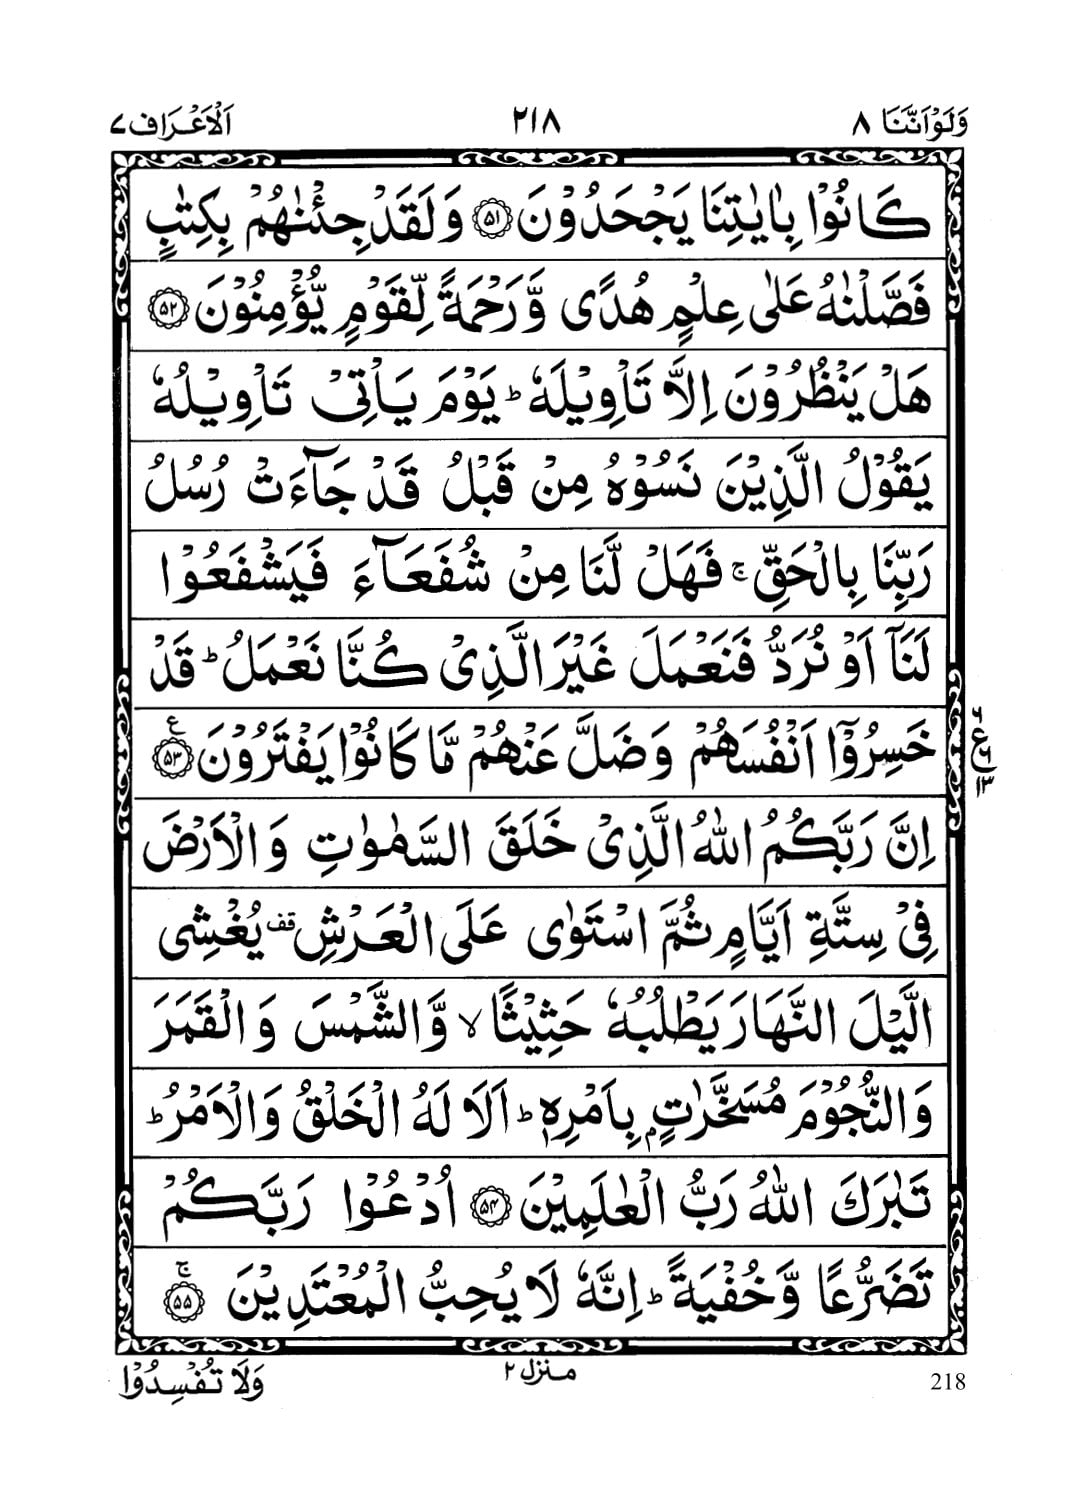 وَلَوْاَنَّنَا ۸
۲۱۸
اَلْاَعْرَاف ۷
كَانُوْا بِاٰيٰتِنَا يَجْحَدُوْنَ ﴿۵۱﴾ وَلَقَدْ جِئْنٰهُمْ بِكِتٰبٍ
فَصَّلْنٰهُ عَلٰى عِلْمٍ هُدًى وَّرَحْمَةً لِّقَوْمٍ يُّؤْمِنُوْنَ ﴿۵۲﴾
هَلْ يَنْظُرُوْنَ اِلَّا تَاْوِيْلَهٗ ؕ يَوْمَ يَاْتِىْ تَاْوِيْلُهٗ
يَقُوْلُ الَّذِيْنَ نَسُوْهُ مِنْ قَبْلُ قَدْ جَآءَتْ رُسُلُ
رَبِّنَا بِالْحَقِّ ۚ فَهَلْ لَّنَا مِنْ شُفَعَآءَ فَيَشْفَعُوْا
لَنَآ اَوْ نُرَدُّ فَنَعْمَلَ غَيْرَ الَّذِىْ كُنَّا نَعْمَلُ ؕ قَدْ
خَسِرُوْٓا اَنْفُسَهُمْ وَضَلَّ عَنْهُمْ مَّا كَانُوْا يَفْتَرُوْنَ ﴿۵۳﴾ ع
ع ۶ ۱۳
اِنَّ رَبَّكُمُ اللّٰهُ الَّذِىْ خَلَقَ السَّمٰوٰتِ وَالْاَرْضَ
فِىْ سِتَّةِ اَيَّامٍ ثُمَّ اسْتَوٰى عَلَى الْعَرْشِ قف يُغْشِى
الَّيْلَ النَّهَارَ يَطْلُبُهٗ حَثِيْثًا ۙ وَّالشَّمْسَ وَالْقَمَرَ
وَالنُّجُوْمَ مُسَخَّرٰتٍۭ بِاَمْرِهٖ ؕ اَلَا لَهُ الْخَلْقُ وَالْاَمْرُ ؕ
تَبٰرَكَ اللّٰهُ رَبُّ الْعٰلَمِيْنَ ﴿۵۴﴾ اُدْعُوْا رَبَّكُمْ
تَضَرُّعًا وَّخُفْيَةً ؕ اِنَّهٗ لَا يُحِبُّ الْمُعْتَدِيْنَ ﴿۵۵﴾ ۚ
218
منزل ۲
وَلَا تُفْسِدُوْا